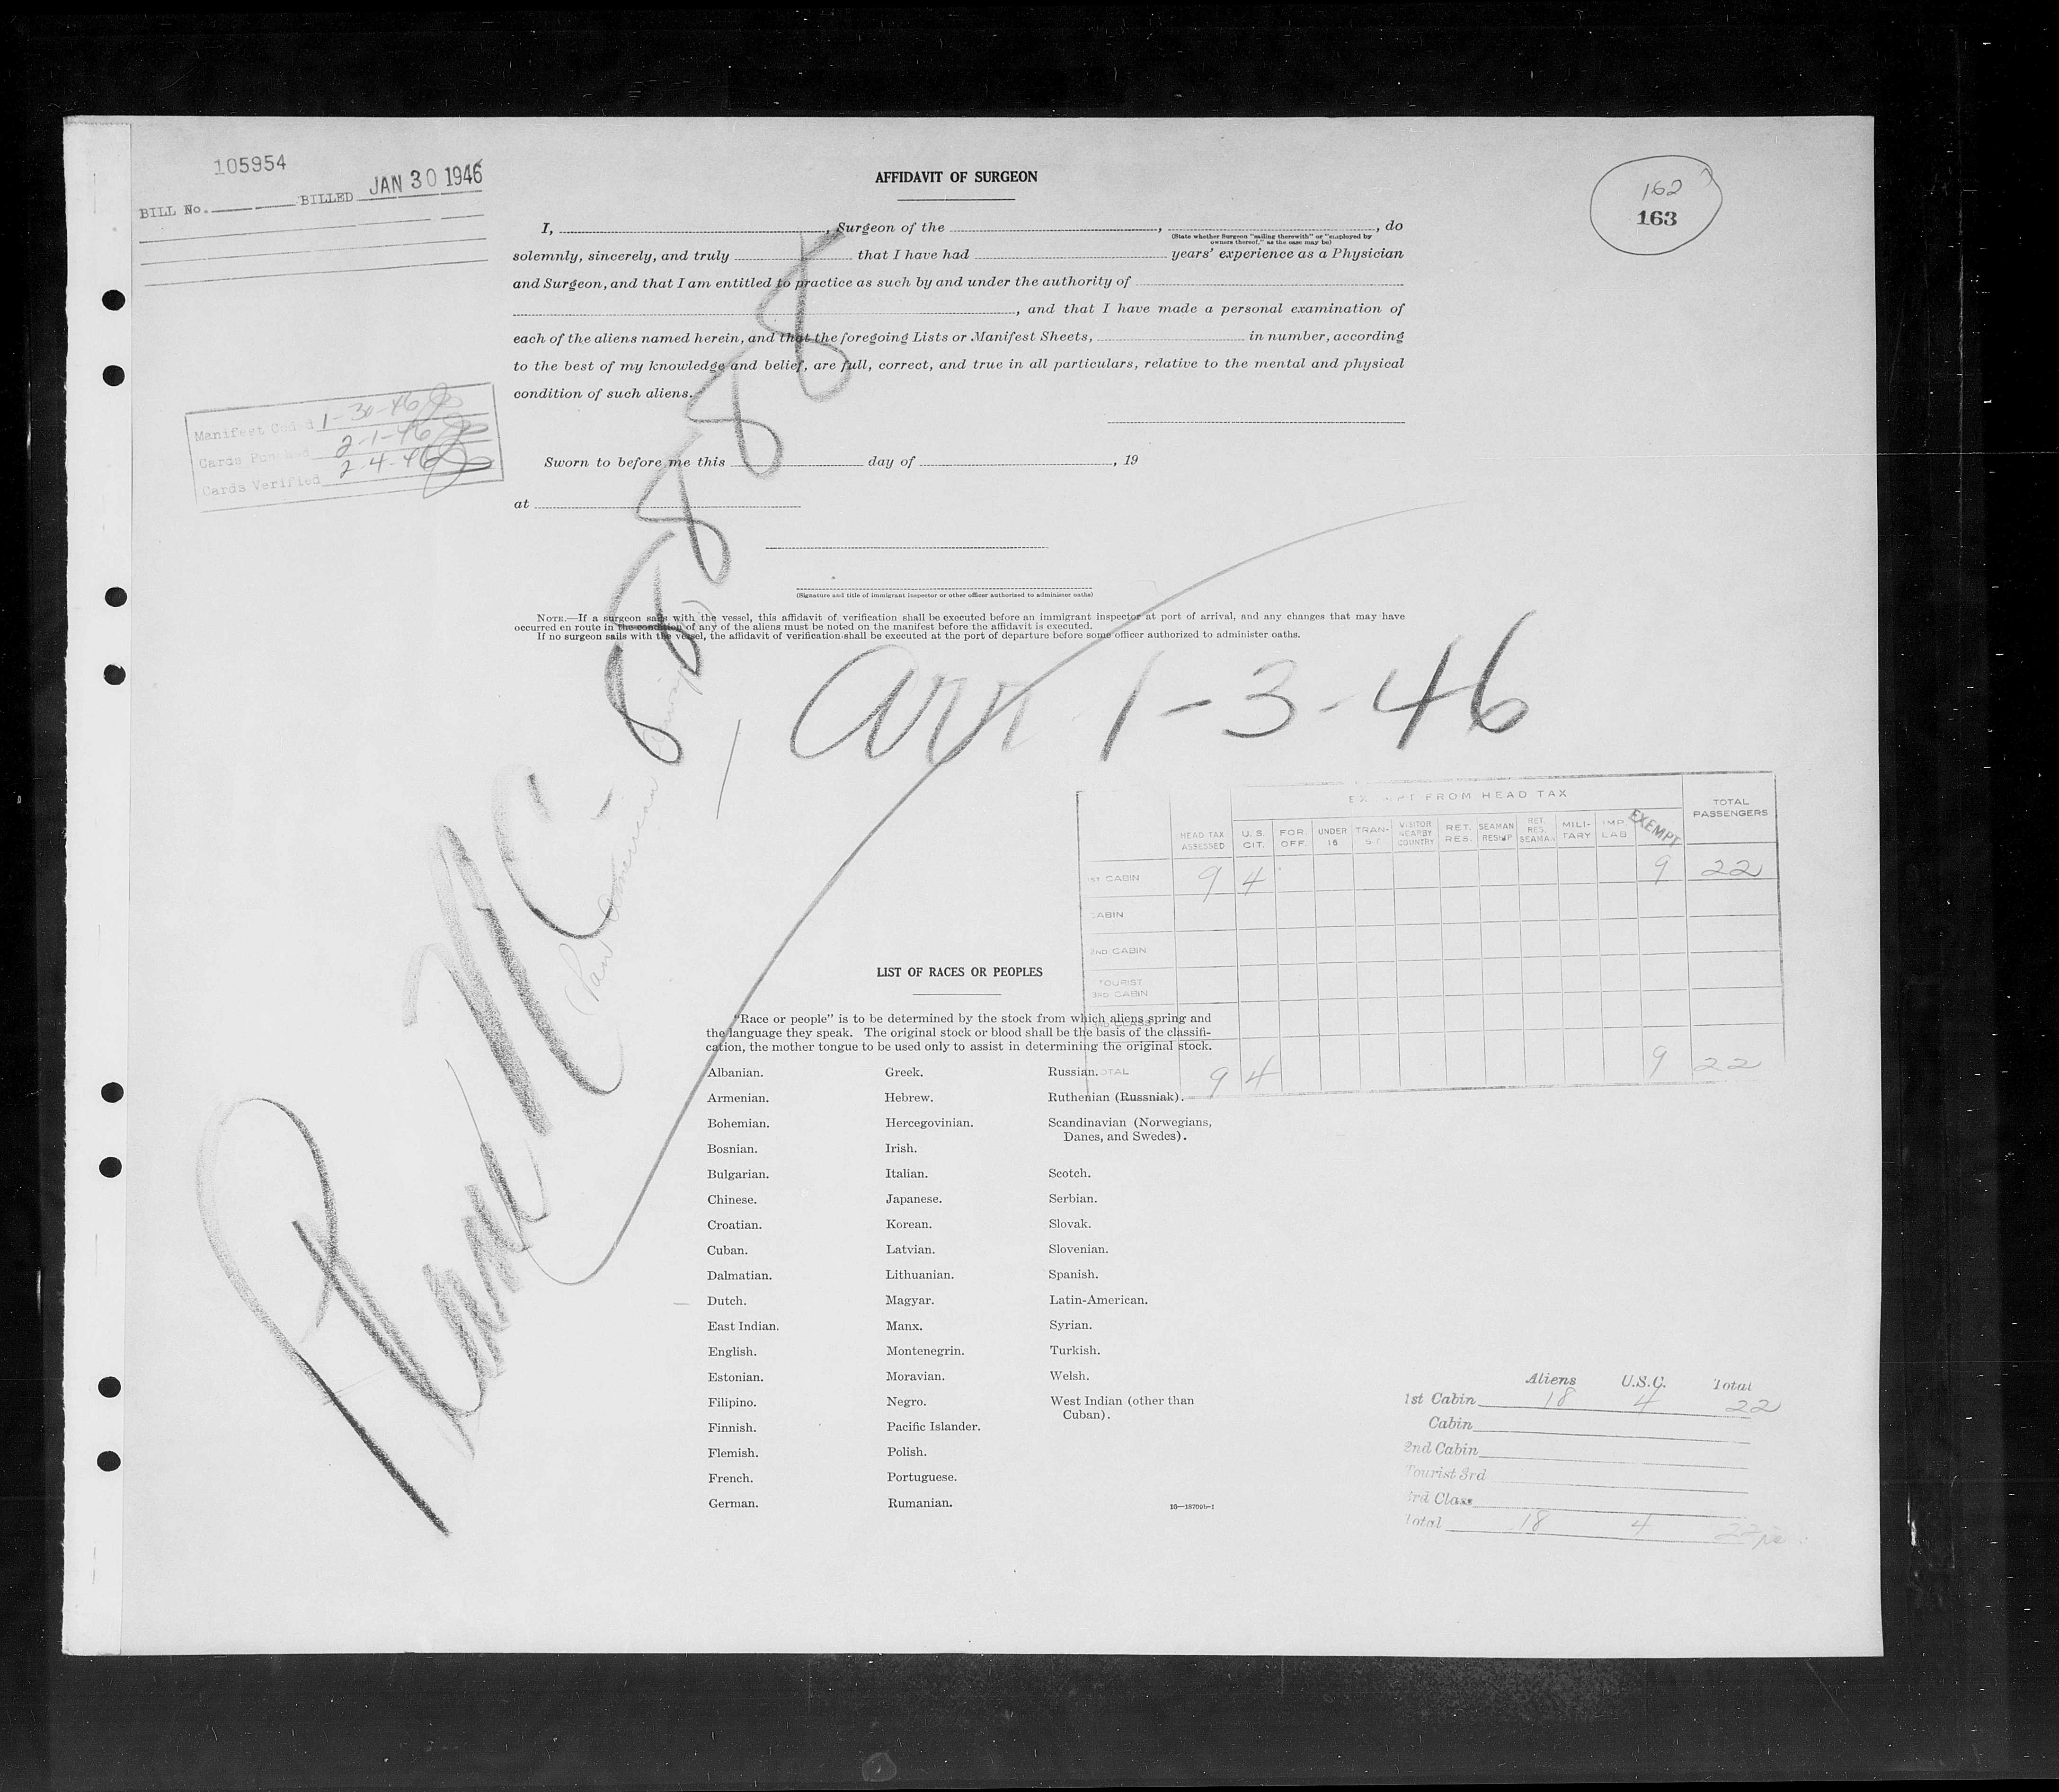 105954
BILL No. BILLED JAN 30 1946
AFFIDAVIT OF SURGEON
162
163
I, , Surgeon of the , , do
(State whether Surgeon "sailing therewith" or "employed by
owners thereof," as the case may be)
solemnly, sincerely, and truly that I have had years' experience as a Physician
and Surgeon, and that I am entitled to practice as such by and under the authority of
, and that I have made a personal examination of
each of the aliens named herein, and that the foregoing Lists or Manifest Sheets, in number, according
to the best of my knowledge and belief, are full, correct, and true in all particulars, relative to the mental and physical
condition of such aliens.
Manifest Coded 1-30-46
Cards Punched 2-1-46
Cards Verified 2-4-46
Sworn to before me this day of , 19
at
(Signature and title of immigrant inspector or other officer authorized to administer oaths)
NOTE.—If a surgeon sails with the vessel, this affidavit of verification shall be executed before an immigrant inspector at port of arrival, and any changes that may have
occurred en route in the condition of any of the aliens must be noted on the manifest before the affidavit is executed.
If no surgeon sails with the vessel, the affidavit of verification shall be executed at the port of departure before some officer authorized to administer oaths.
Plane NC 88888
Pan American
arr 1-3-46
EXEMPT FROM HEAD TAX
HEAD TAX ASSESSED U. S. CIT. FOR. OFF. UNDER 16 TRANSIT VISITOR NEARBY COUNTRY RET. RES. SEAMAN RESHIP RET. RES. SEAMAN MILITARY IMP. LAB EXEMPT TOTAL PASSENGERS
1ST CABIN 9 4 9 22
CABIN
2ND CABIN
TOURIST
3RD CABIN
3RD CLASS
TOTAL 9 4 9 22
LIST OF RACES OR PEOPLES
"Race or people" is to be determined by the stock from which aliens spring and
the language they speak. The original stock or blood shall be the basis of the classifi-
cation, the mother tongue to be used only to assist in determining the original stock.
Albanian.
Armenian.
Bohemian.
Bosnian.
Bulgarian.
Chinese.
Croatian.
Cuban.
Dalmatian.
Dutch.
East Indian.
English.
Estonian.
Filipino.
Finnish.
Flemish.
French.
German.
Greek.
Hebrew.
Hercegovinian.
Irish.
Italian.
Japanese.
Korean.
Latvian.
Lithuanian.
Magyar.
Manx.
Montenegrin.
Moravian.
Negro.
Pacific Islander.
Polish.
Portuguese.
Rumanian.
Russian.
Ruthenian (Russniak).
Scandinavian (Norwegians,
Danes, and Swedes).
Scotch.
Serbian.
Slovak.
Slovenian.
Spanish.
Latin-American.
Syrian.
Turkish.
Welsh.
West Indian (other than
Cuban).
16—18709b-1
Aliens U.S.C. Total
1st Cabin 18 4 22
Cabin
2nd Cabin
Tourist 3rd
3rd Class
Total 18 4 22